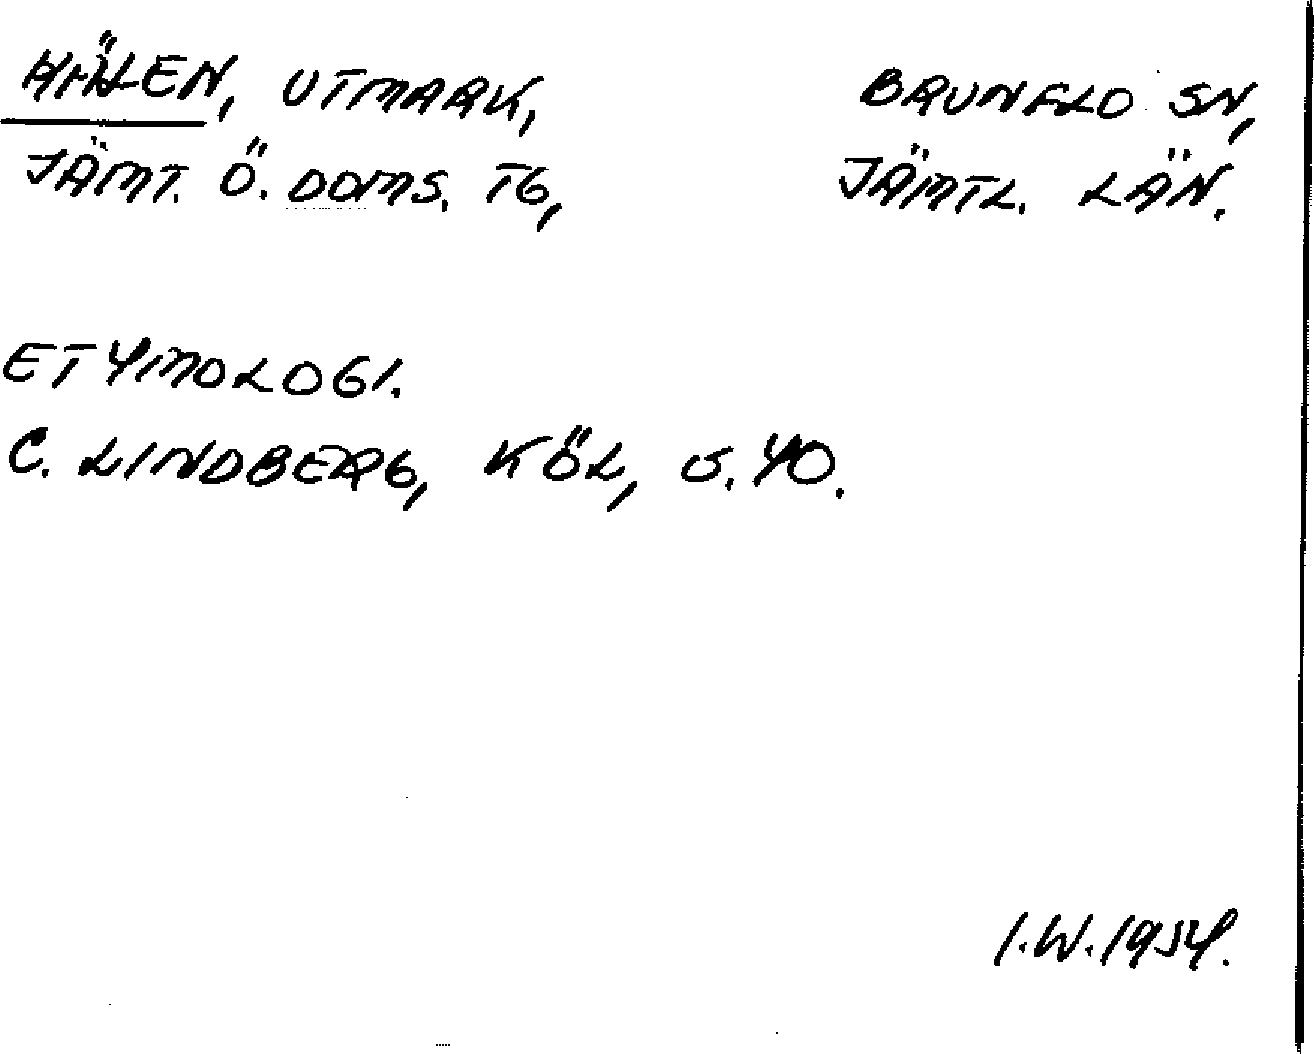 HÄLEN, UTMARK, BRUNFLO SN,
JÄMT. Ö. DOMS. TG, JÄMTL. LÄN.
ETYMOLOGI.
C. LINDBERG, KÖL, S. 40.
I.W. 1954.